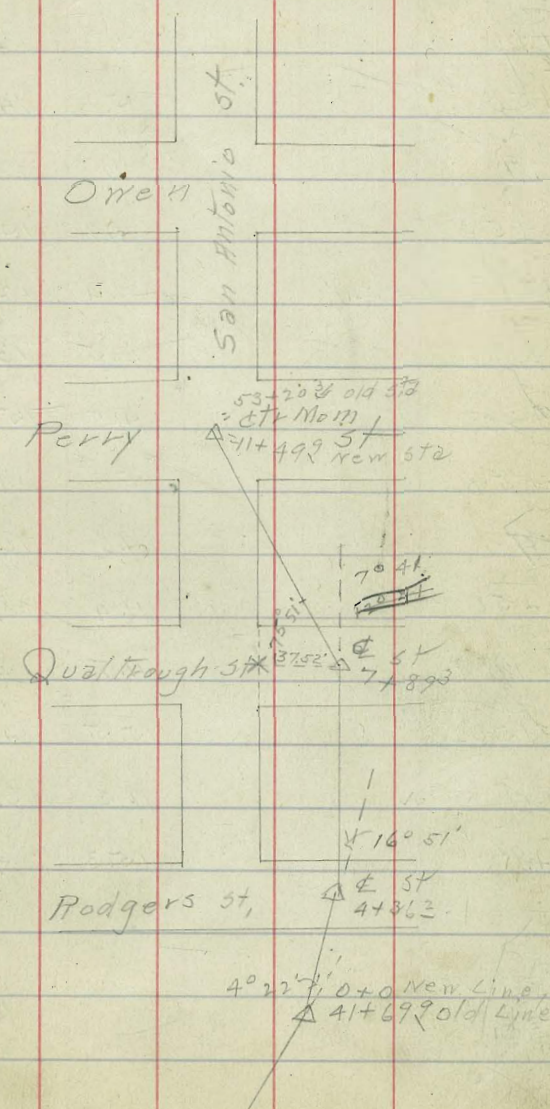 San Antonio St.
Owen
53+20 old Sta
= Ctr Mom
Perry
=11+49⁹ St
New Sta
7° 41'
75° 51'
Qualtrough St
37.52'
℄ St
7+89³
16° 51'
Rodgers St,
℄ St
4+36²
4° 22'
0+0 New Line
41+69⁹ Old Line